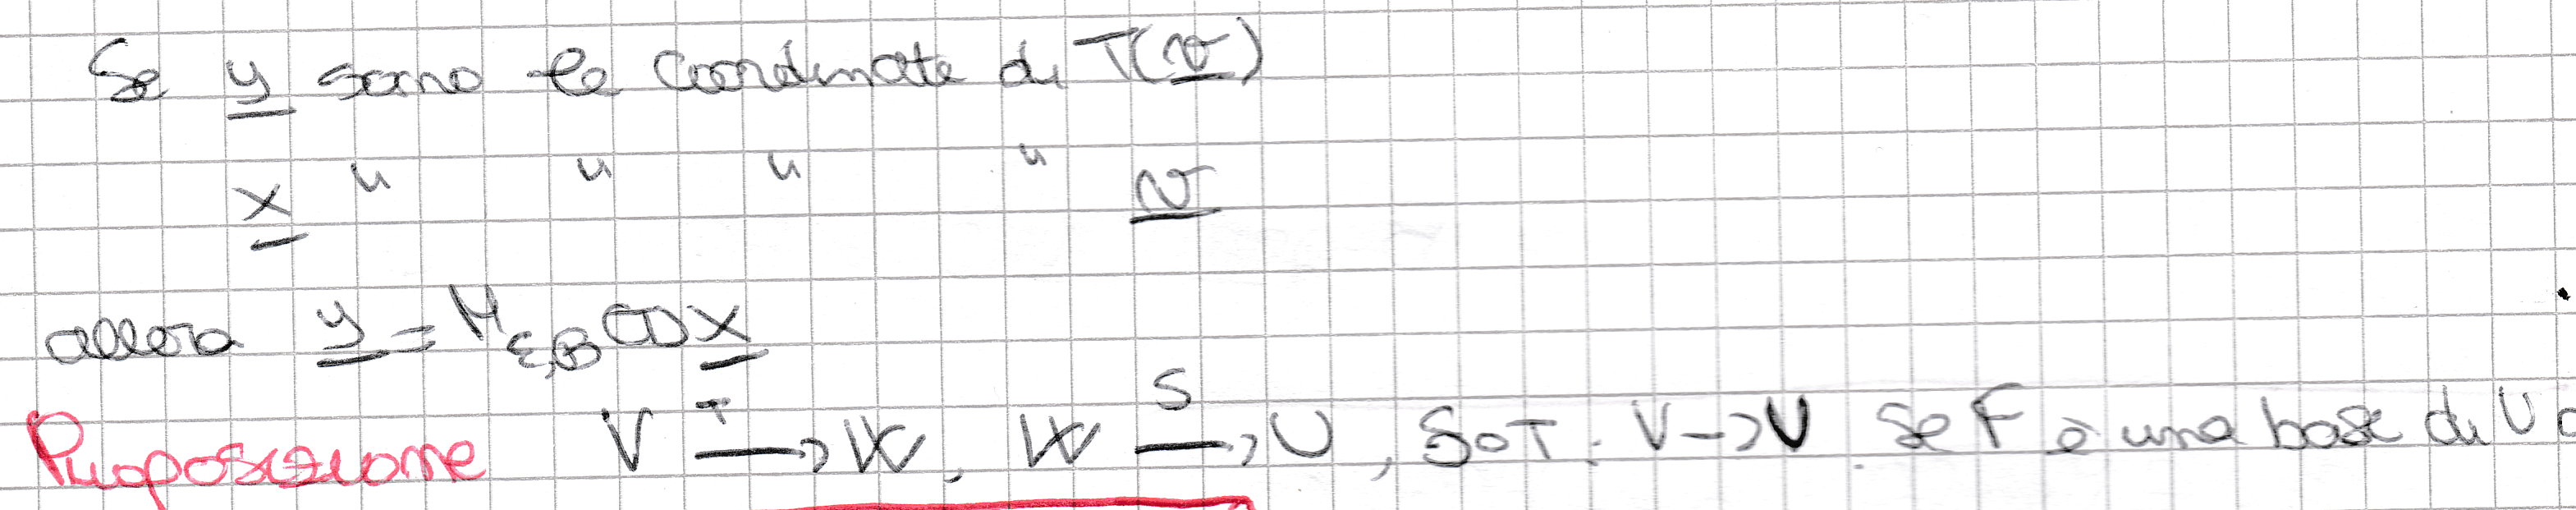 Se y sono le coordinate di T(v)
x " " " " v
allora y = M_{E,B}(T) x
Proposizione V →ᵀ W, W →ˢ U, S∘T: V→U. Se F è una base di U